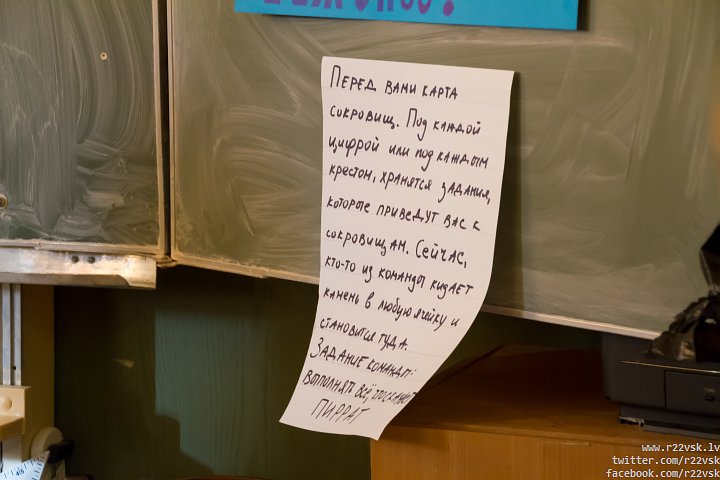 Перед вами карта
сокровищ. Под каждой
цифрой или под каждым
крестом, хранятся задания,
которые приведут вас к
сокровищам. Сейчас,
кто-то из команды кидает
камень в любую ячейку и
становится туда.
Задание команды:
выполнять всё, что скажет
ПИРРАТ
www.r22vsk.lv
twitter.com/r22vsk
facebook.com/r22vsk